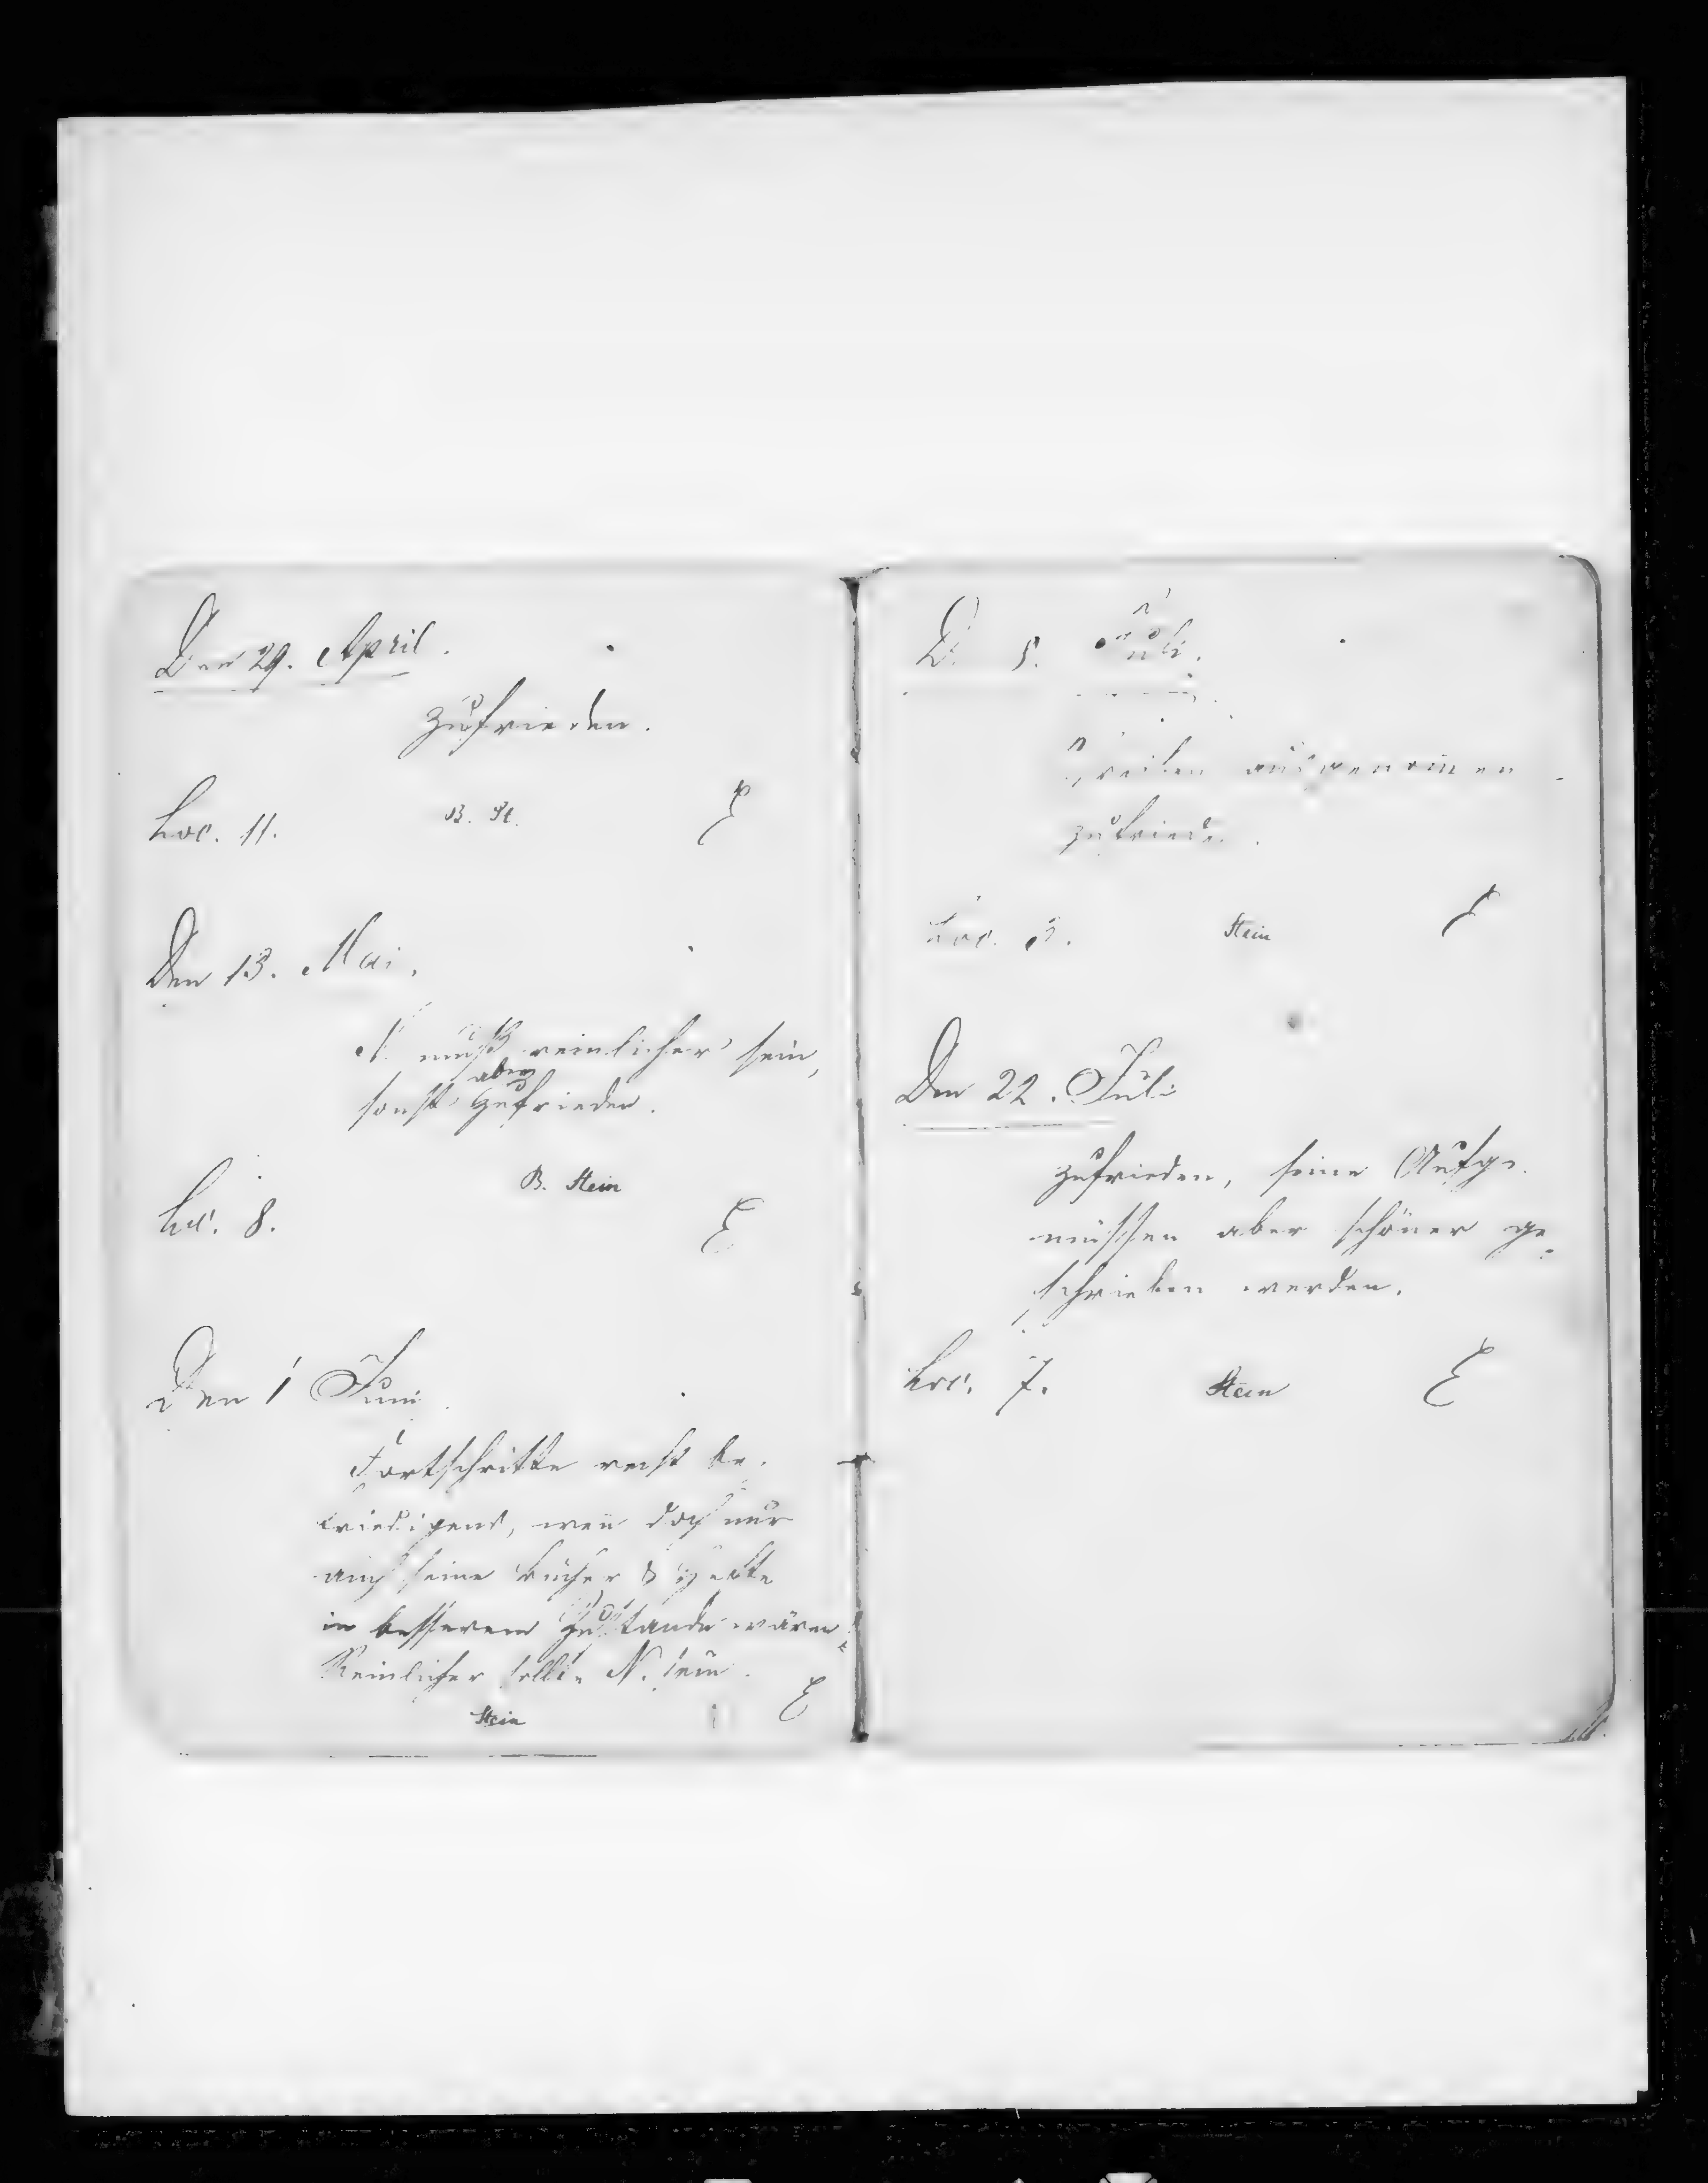 Den 29. April.
zufrieden.
Loc. 11. B. St. E
Den 13. Mai.
N. muß reinlicher sein,
aber
sonst zufrieden.
Loc. 8. B. Stein E
Den 1 Juni
Fortschritte recht be-
friedigend, wen̄ doch nur
auch seine Bücher & Hefte
in besserem Zustande wären.
Reinlicher sollte N. sein.
Stein E
D. 5. Juli.
ausgenom̄en
zufrieden.
Loc. 3. Stein E
Den 22. Juli
zufrieden, seine Aufg.
müssen aber schöner ge-
schrieben werden.
Loc. 7. Stein E